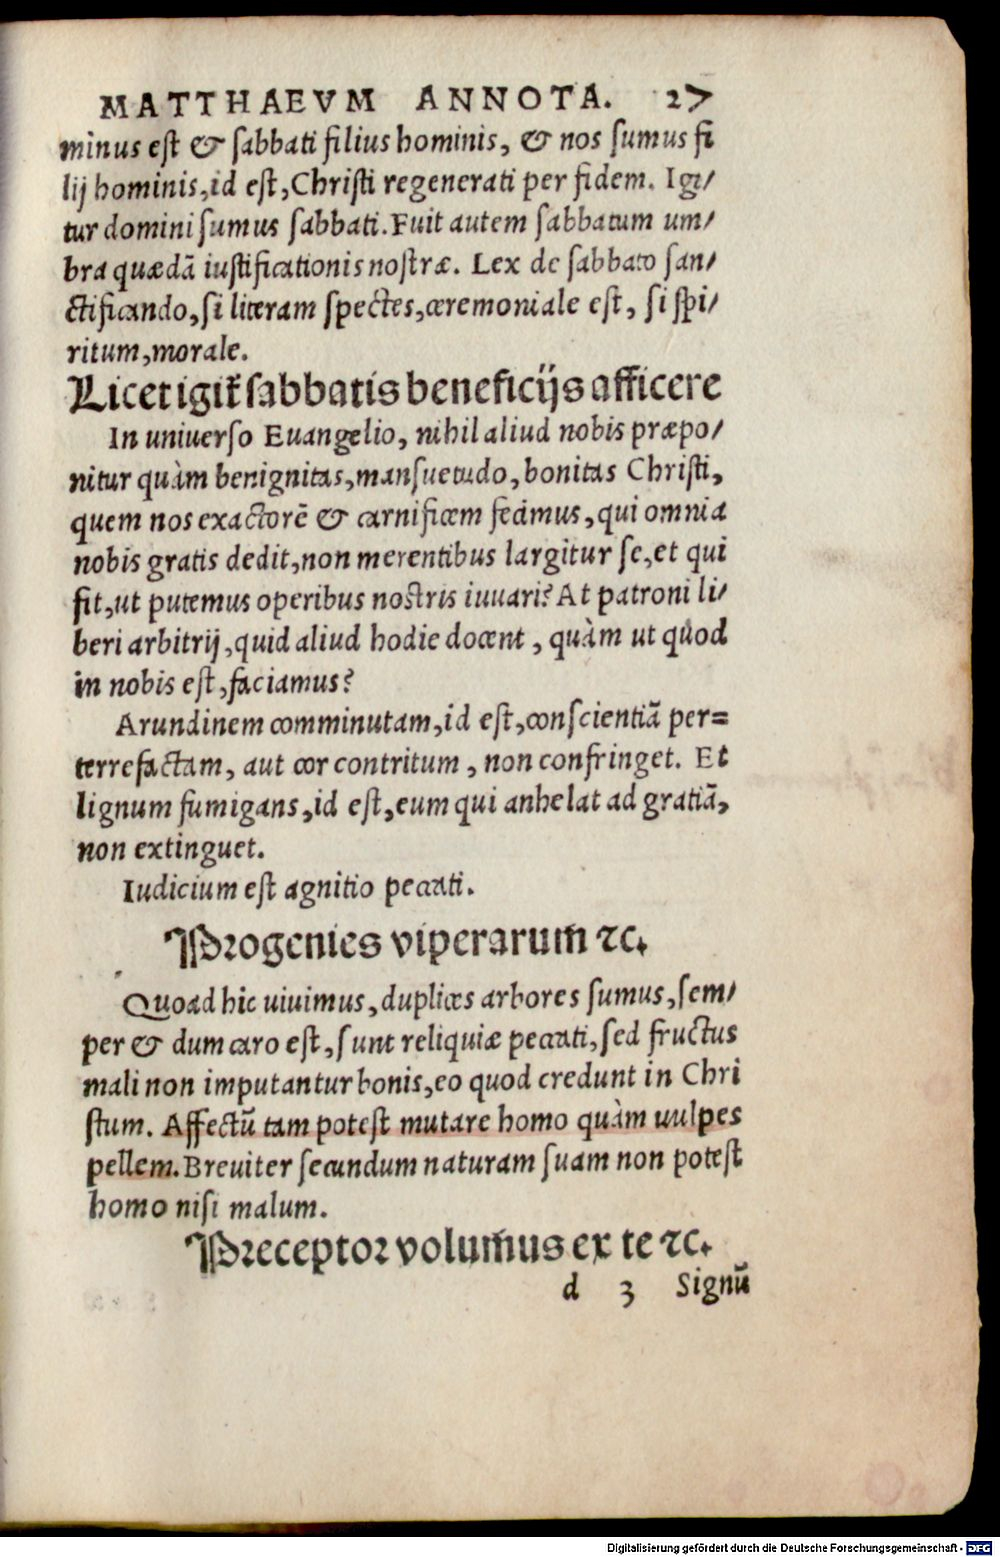 MATTHAEVM ANNOTA. 27
minus est & sabbati filius hominis, & nos sumus fi
lij hominis, id est, Christi regenerati per fidem. Igi/
tur domini sumus sabbati. Fuit autem sabbatum um/
bra quædā iustificationis nostræ. Lex de sabbato san/
ctificando, si literam spectes, ceremoniale est, si spi/
ritum, morale.
Licet igit̃ sabbatis beneficijs afficere
In uniuerso Euangelio, nihil aliud nobis præpo/
nitur quàm benignitas, mansuetudo, bonitas Christi,
quem nos exactorē & carnificem fecimus, qui omnia
nobis gratis dedit, non merentibus largitur se, et qui
fit, ut putemus operibus nostris iuuari? At patroni li/
beri arbitrij, quid aliud hodie docent, quàm ut quod
in nobis est, faciamus?
Arundinem comminutam, id est, conscientiā per=
terrefactam, aut cor contritum, non confringet. Et
lignum fumigans, id est, eum qui anhelat ad gratiā,
non extinguet.
Iudicium est agnitio peccati.
Progenies viperarum̃ ⁊c.
Quoad hic uiuimus, duplices arbores sumus, sem/
per & dum caro est, sunt reliquiæ peccati, sed fructus
mali non imputantur bonis, eo quod credunt in Chri
stum. Affectū tam potest mutare homo quàm uulpes
pellem. Breuiter secundum naturam suam non potest
homo nisi malum.
Preceptor volum̃us ex te ⁊c.
d 3 Signū
Digitalisierung gefördert durch die Deutsche Forschungsgemeinschaft - DFG